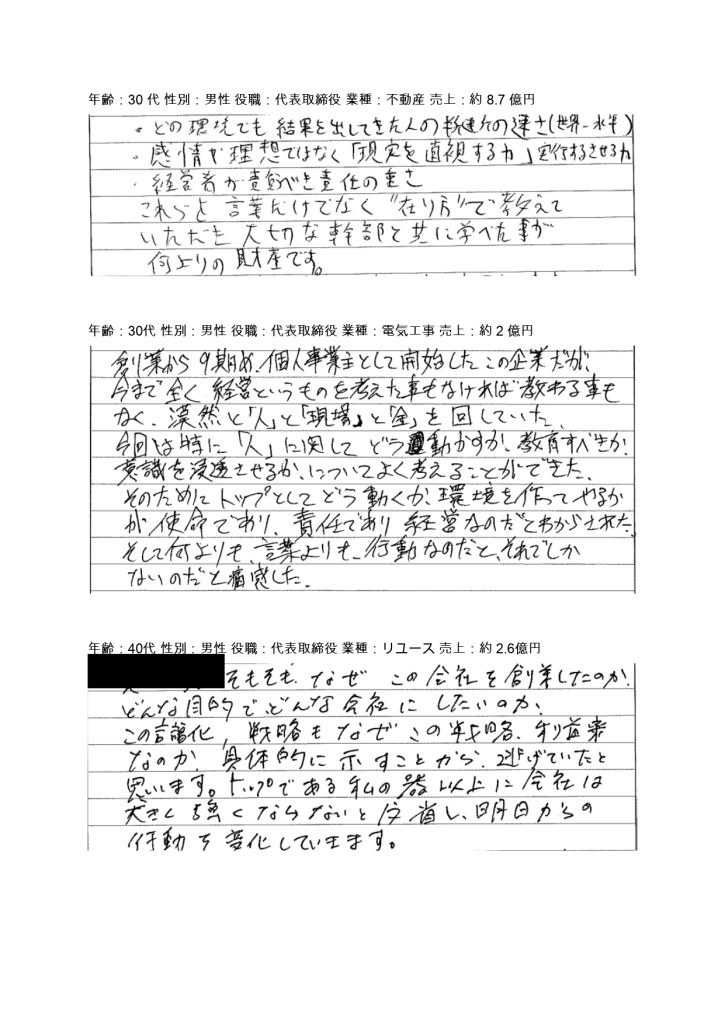 年齢：30 代 性別：男性 役職：代表取締役 業種：不動産 売上：約 8.7 億円
・どの環境でも結果を出してきた人の転進の速さ(世界一水準)
・感情や理想ではなく「現実を直視する力」実行するさせる力
・経営者が責負べき責任の重さ
これらを言葉だけでなく"在り方"で教えて
いただき 大切な幹部と共に学べた事が
何よりの財産です。
年齢：30代 性別：男性 役職：代表取締役 業種：電気工事 売上：約 2 億円
創業から9期め、個人事業主として開始したこの企業だが、
今まで全く経営というものを考えた事もなければ教わる事も
なく、漠然と「人」と「現場」と「金」を回していた。
今回は特に「人」に関してどう動かすか、教育すべきか
意識を浸透させるか、についてよく考えることができた。
そのためにトップとしてどう動くか、環境を作ってやるか
が使命であり、責任であり経営なのだとわからされた。
そして何よりも、言葉よりも、行動なのだと、それでしか
ないのだと痛感した。
年齢：40代 性別：男性 役職：代表取締役 業種：リユース 売上：約 2.6億円
そもそも、なぜ この会社を創業したのか、
どんな目的で、どんな会社に したいのか、
この言語化、戦略もなぜこの戦略、利益案
なのか、具体的に示すことから、逃げていたと
思いします。トップである私の器以上に会社は
大きく強くならないと反省し、明日からの
行動を変化していきます。